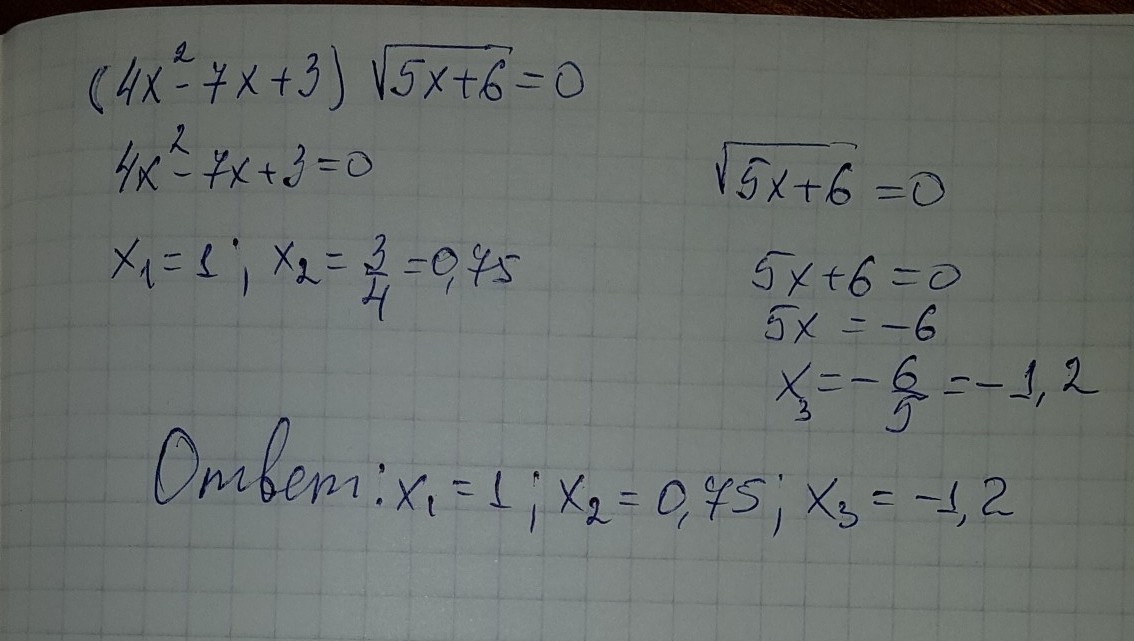 (4x² - 7x + 3) √5x+6 = 0
4x² - 7x + 3 = 0
x₁ = 1 ; x₂ = 3/4 = 0,75
√5x+6 = 0
5x + 6 = 0
5x = -6
x₃ = - 6/5 = -1,2
Ответ: x₁ = 1 ; x₂ = 0,75 ; x₃ = -1,2